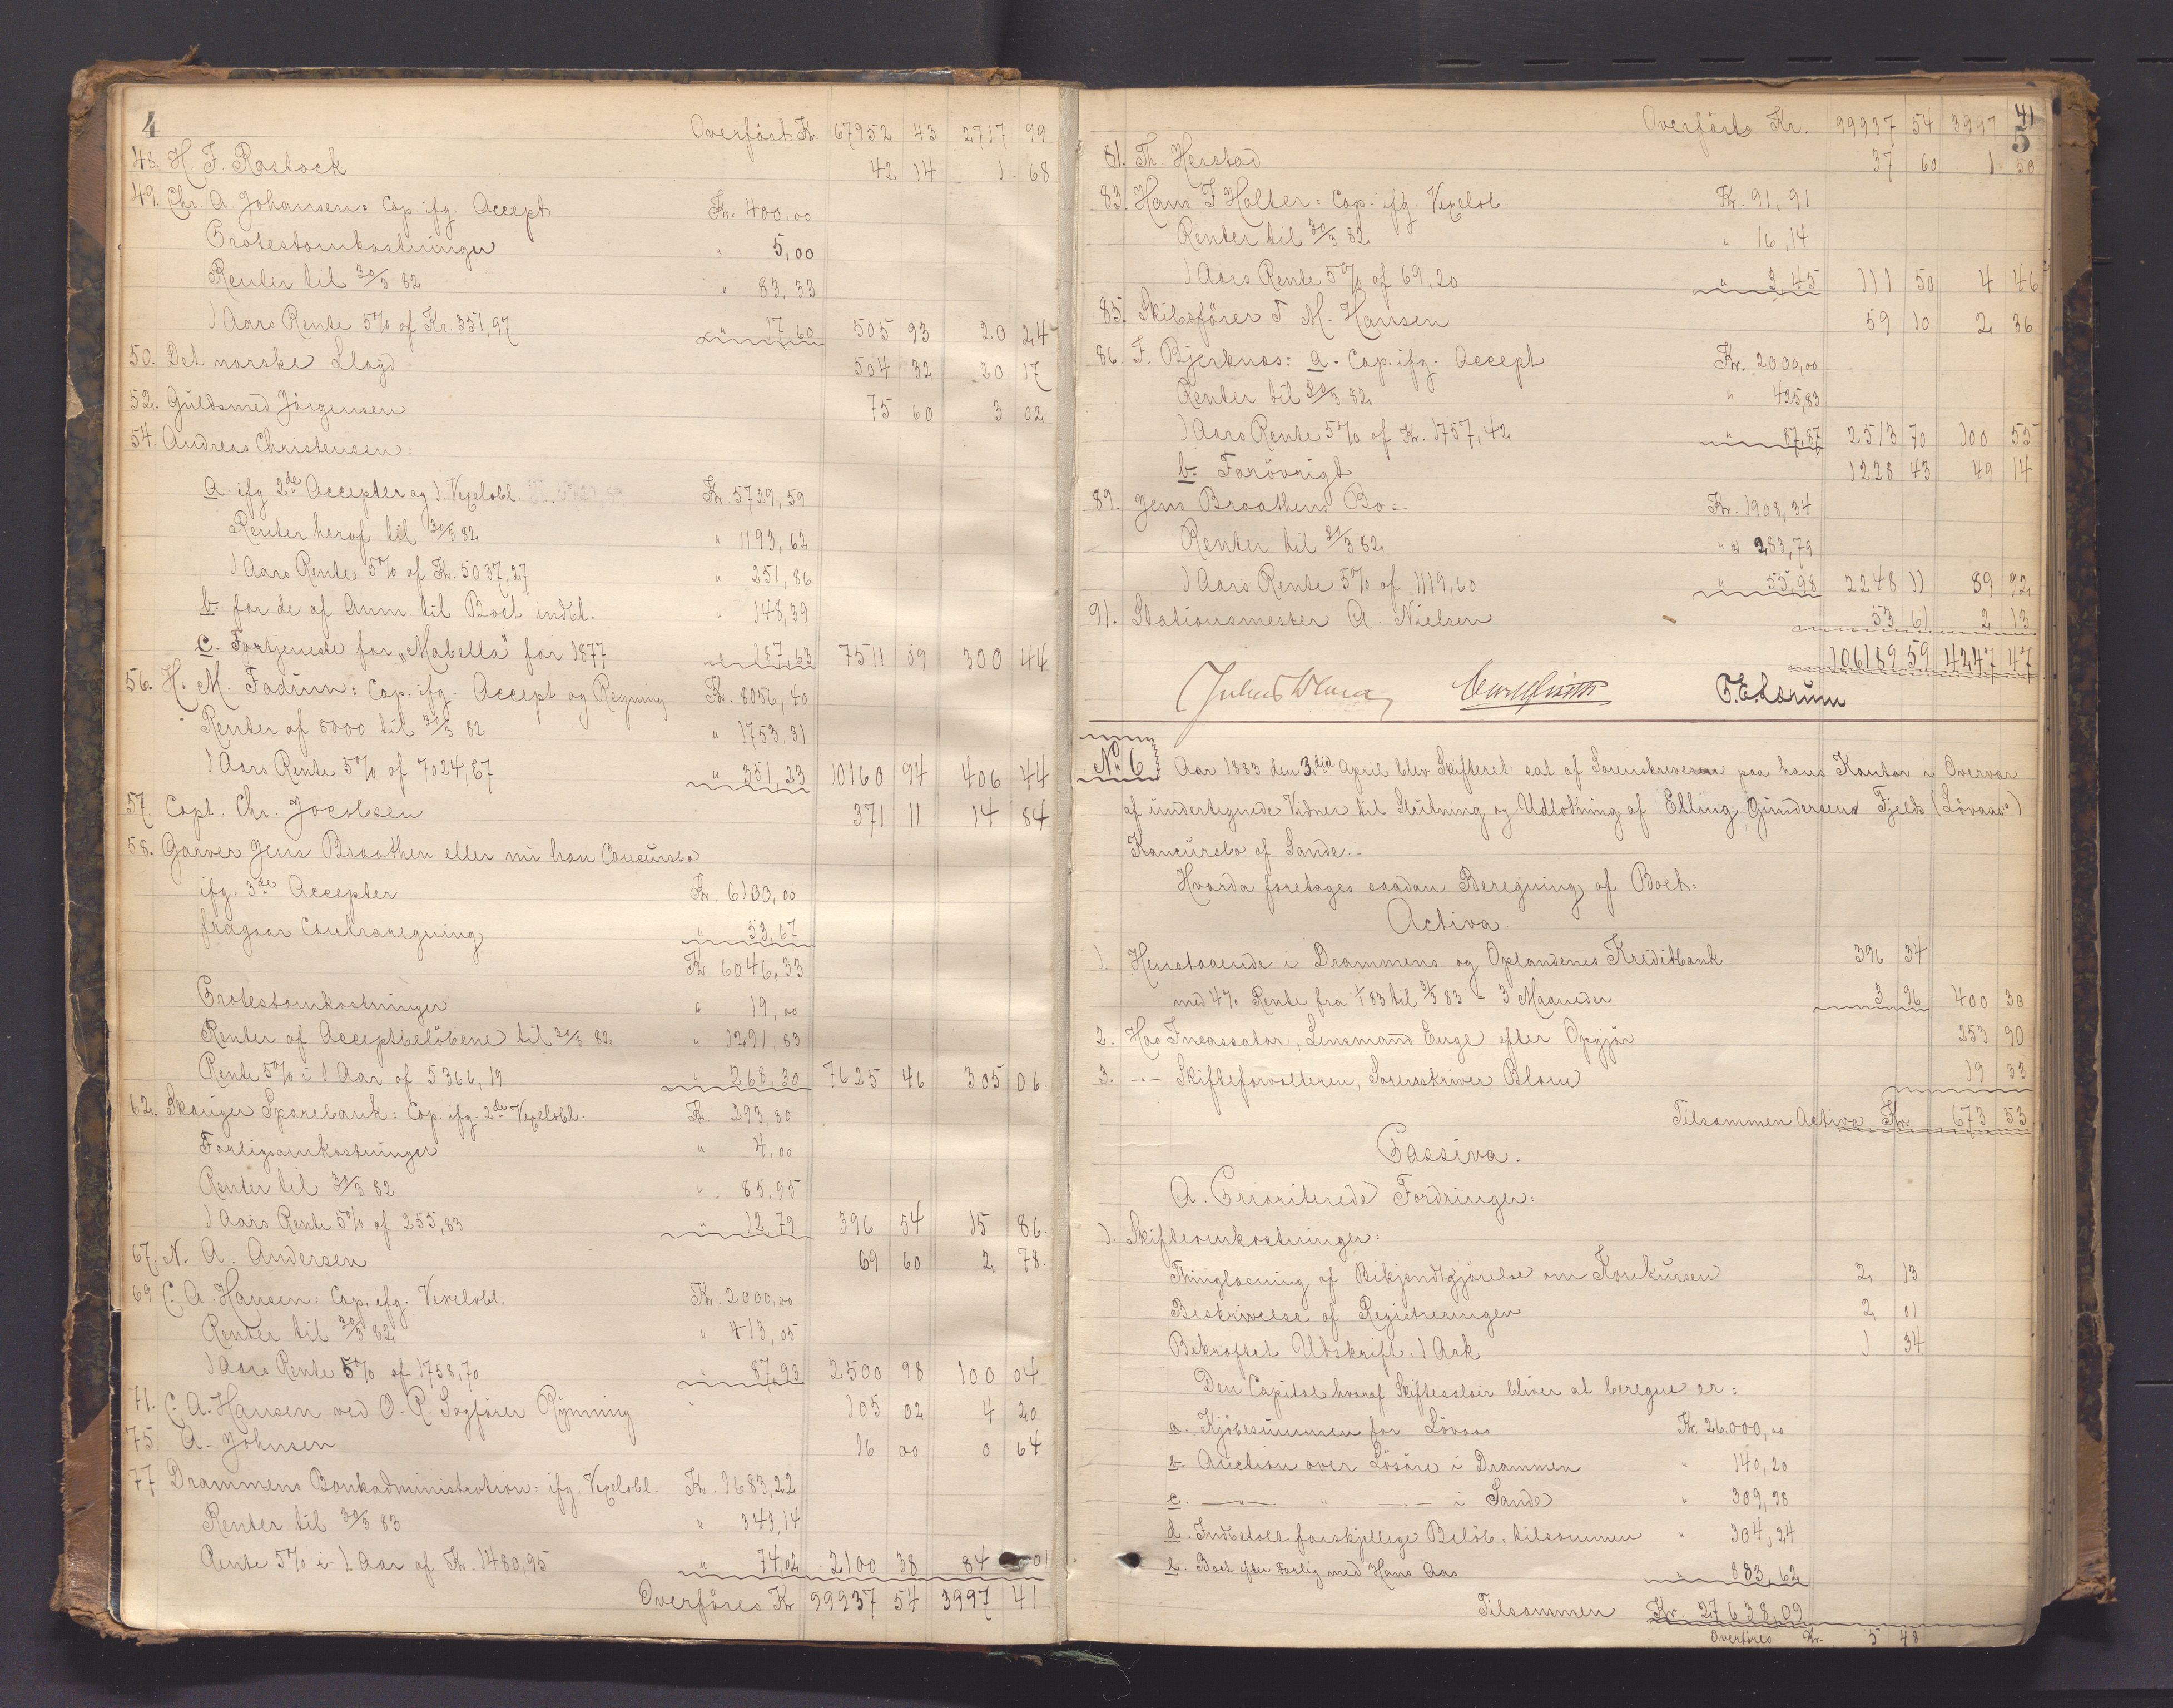 4
Overført Kr. 67952 43 2717 99
48. H. F. Rostock 42 14 1 68
49. Chr. A. Johansen: Cap. ifg. Accept Kr. 400,00
Protestomkostninger " 5,00
Renter til 30/3 82 " 83,33
1 Aars Rente 5% af Kr. 351,97 " 17,60 505 93 20 24
50. Det norske Lloyd 504 32 20 17
52. Guldsmed Jørgensen 75 60 3 02
54. Andreas Christensen:
a. ifg 2de Accepter og 1. Vexelobl. Kr. 5729,59
Renter heraf til 30/3 82 " 1193,62
1 Aars Rente 5% af Kr. 5037,27 " 251,86
b. for de af Anm. til Boet indbt. " 148,39
c. Fortjeneste for "Mabella" for 1877 " 187,63 7511 09 300 44
56. H. M. Fadum: Cap. ifg. Accept og Regning Kr. 8056,40
Renter af 8000 til 30/3 82 " 1753,31
1 Aars Rente 5% af 7024,67 " 351,23 10160 94 406 44
57. Capt. Chr. Jacobsen 371 11 14 84
58. Garver Jens Braathen eller nu han Concursbo
ifg. 3de Accepter Kr. 6100,00
fragaar Contraregning " 53,67
Kr 6046,33
Protestomkostninger " 19,00
Renter af Acceptbeløbene til 30/3 82 " 1291,83
Rente 5% i 1 Aar af 5366,19 " 268,30 7625 46 305 06
62. Skouger Sparebank: Cap. ifg. 2de Vexelobl. Kr. 293,80
Forligsomkostninger " 4,00
Renter til 30/3 82 " 85,95
1 Aars Rente 5% af 255,83 " 12,79 396 54 15 86
67. N. A. Andersen 69 60 2 78
69 C. A. Hansen: Cap. ifg. Vexelobl. Kr. 2000,00
Renter til 30/3 82 " 413,05
1 Aars Rente 5% af 1758,70 " 87,93 2500 98 100 04
71. C. A. Hansen ved O. R. Sagfører Rynning 105 02 4 20
75. A. Johnsen 16 00 0 64
77 Drammens Bankadministration: ifg. Vexelobl. Kr. 1683,22
Renter til 30/3 83 " 343,14
Rente 5% i 1. Aar af Kr. 1480,95 " 74,02 2100 38 84 01
Overføres Kr 99937 54 3997 41
5
Overført Kr. 99937 54 3997 41
81. Th. Herstad 37 60 1 50
83. Hans F Holter: Cap. ifg. Vexelob. Kr. 91,91
Renter til 30/3 82 " 16,14
1 Aars Rente 5% af 69,20 " 3,45 111 50 4 46
85. Skibsfører T. M. Hansen 59 10 2 36
86. F. Bjerknæs: a. Cap. ifg. Accept Kr. 2000,00
Renter til 30/3 82 " 425,83
1 Aars Rente 5% af Kr. 1757,42 " 87,87 2513 70 100 55
b. Forøvrigt 1228 43 49 14
89. Jens Braathens Bo: Kr. 1908,34
Renter til 31/3 82 " 283,79
1 Aars Rente 5% af 1119,60 " 55,98 2248 11 89 92
91. Stationsmester A. Nielsen 53 61 2 13
106189 59 4247 47
T. E. Lørum
No 6. Aar 1883 den 3die April blev Skifteret sat af Sorenskriveren paa hans Kontor i Overvær
af undertegnede Vidner til Slutning og Udlodning af Elling Gundersens Fjelds (Løvaas)
Koncursbo af Sande.
Hvorda foretoges saadan Beregning af Boet:
Activa.
1. Henstaaende i Drammens og Oplandenes Kreditbank 396 34
med 4% Rente fra 1/1 83 til 31/3 83 - 3 Maaneder 3 96 400 30
2. Hos Incassator, Lensmand Enge efter Opgjør 253 90
3. -"- Skifteforvalteren, Sorenskriver Blom 19 33
Tilsammen Activa Kr. 673 53
Passiva.
A. Prioriterede Fordringer:
1. Skifteomkostninger:
Thinglæsning af Bekjendtgjørelse om Konkursen 2 13
Beskrivelse af Registreringen 2 01
Bekræftet Udskrift 1 Ark 1 34
Den Capital hvoraf Skiftesalair bliver at beregne er:
a. Kjøbesummen for Løvaas Kr. 26.000,00
b. Auction over Løsøre i Drammen " 140,20
c. —"— " —"— i Sande " 309,98
d. Indbetalt forskjellige Beløb, tilsammen " 304,24
e. Boet efter Forlig med Hans Aas " 883,62
Tilsammen Kr. 27638,09
Overføres Kr. 5 48